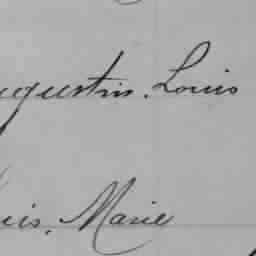 ugustin. Louis
uis. Marie